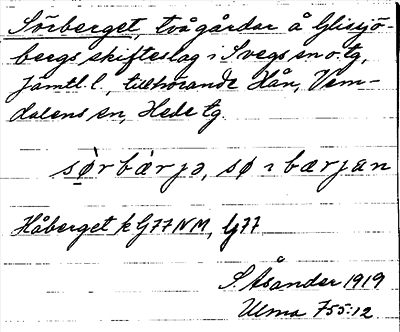 Sörberget, två gårdar å Glissjö-
bergs skifteslag i Svegs sn o. tg,
Jämtl. l., tillhörande Hån, Vem-
dalens sn, Hede tg.
sø̀rbærjə, sø i bærjan
Håberget k G77 NM, G77
S. Åsander 1919
Ulma 755:12